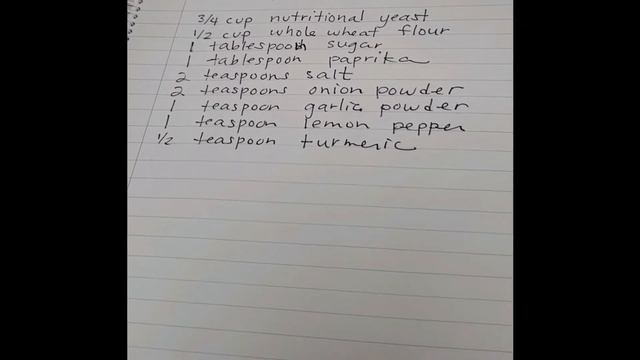 3/4 cup nutritional yeast
1/2 cup whole wheat flour
1 tablespoon sugar
1 tablespoon paprika
2 teaspoons salt
2 teaspoons onion powder
1 teaspoon garlic powder
1 teaspoon lemon pepper
1/2 teaspoon turmeric